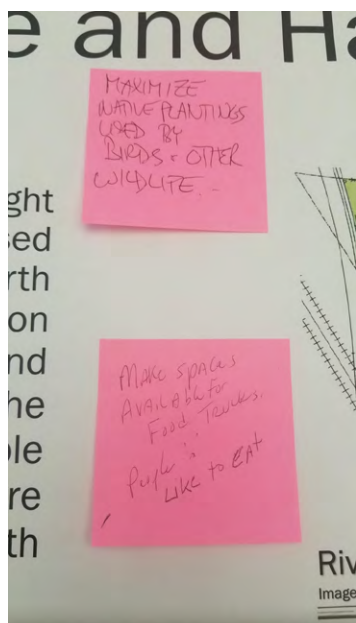 e and Ha
MAXIMIZE
NATIVE PLANTINGS
USED BY
BIRDS & OTHER
WILDLIFE.
ght
sed
rth
on
nd
he
ple
re
th
Make spaces
Available for
Food Trucks.
People
Like to EAt
Riv
Image